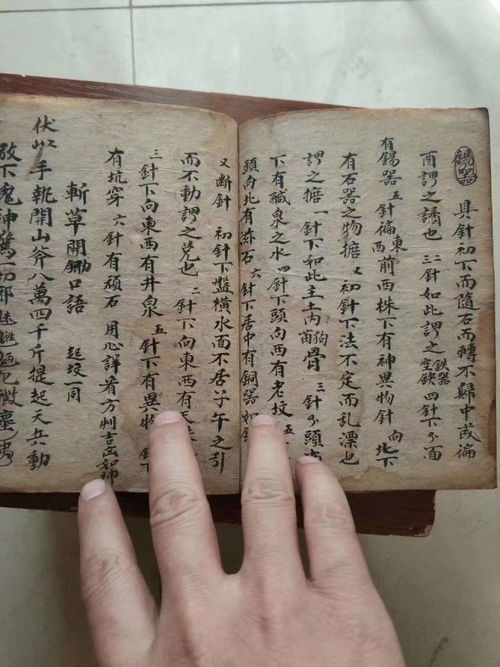 錫器 具針初下而隨石而轉不歸中或偏
酉謂之謠也 二三針如此謂之鉄器空鈌 四針下分面
有錫器 五針偏東西前西株下有神異物針向北下
有石器之物搪 又初針下法不定而乱漂也
謂之搪 一針下如此主土内狗骨 三針分頭
下有鹹泉之水 四針下頭向西有老墳 五
頭向北有 石 六針下居中有銅器如
又断針 初針下 橫水面不居子午之引
而不動謂之兌也 二針下向東西有
三針下向東西有井泉 五針下有異物 針下
有坑穿 六針有頑石 用心詳看方判吉凶如神
斬草開鋤口語 起攻一同
伏以 手執開山斧八萬四千斤提起天兵動
殺下鬼神驚一切邪魅魍魎化微塵